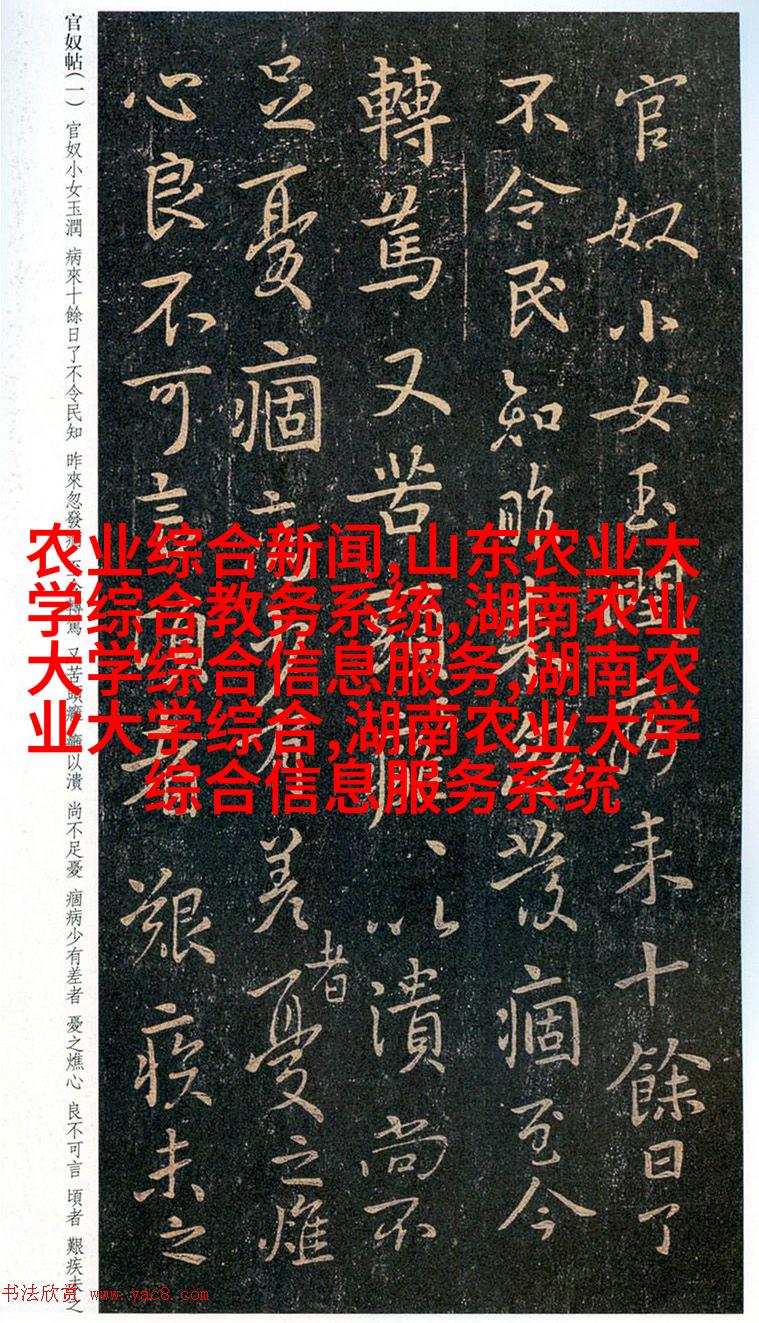 官奴小女玉閏病来十餘日了
不令民知昨来忽發痼至今
轉篤又苦頭癰、以潰尚不
足憂痼病少有差者憂之燋
心良不可言頃者艱疾未之
官奴帖(一) 官奴小女玉潤 病來十餘日了不令民知 昨來忽發痼 至今轉篤 又苦頭癰 癰以潰 尚不足憂 痼病少有差者 憂之燋心 良不可言 頃者 艱疾未之
农业综合新闻,山东农业大
学综合教务系统,湖南农业
大学综合信息服务,湖南农
业大学综合,湖南农业大学
综合信息服务系统
书法欣赏 www.yac8.com